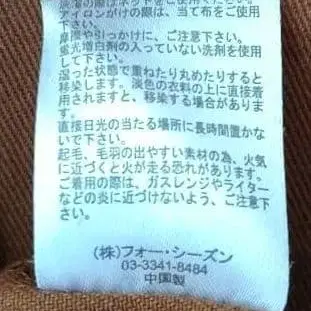 洗濯の際はネットをご使用ください。
アイロンがけの際は、当て布をご使用
下さい。
摩擦や引っかけに、ご注意下さい。
蛍光増白剤の入っていない洗剤を使用
して下さい。
湿った状態で重ねたり丸めたりすると
移染します。淡色の衣料の上に直接着
用されますと、移染する場合がありま
す。
直接日光の当たる場所に長時間置かな
いで下さい。
起毛、毛羽の出やすい素材の為、火気
に近づくと火が走る恐れがあります。
ご着用の際は、ガスレンジやライター
などの炎に近づけないよう、ご注意下
さい。
(株)フォー・シーズン
03-3341-8484
中国製